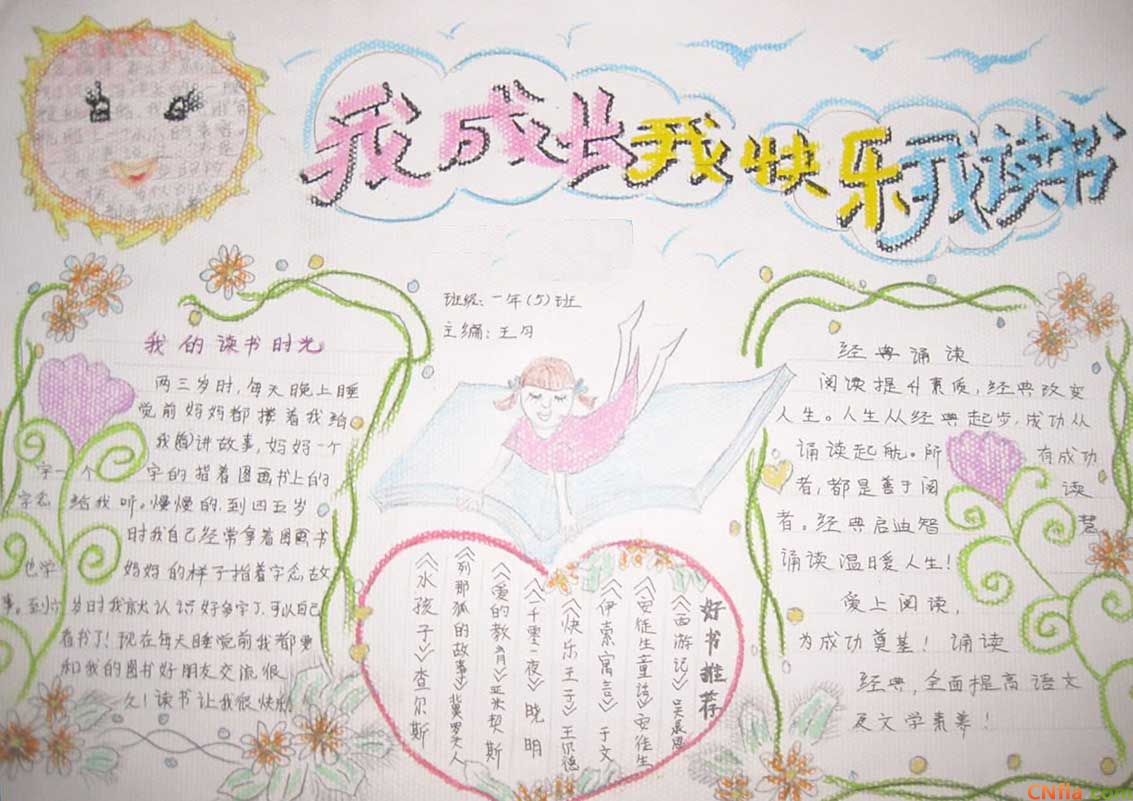 我成长我快乐我读书
班级：一年（5）班
主编：王月
我的读书时光
两三岁时，每天晚上睡
觉前妈妈都搂着我给
我讲故事，妈妈一个
字一个字的指着图画书上的
字念给我听。慢慢的，到四五岁
时我自己经常拿着图画书
也学妈妈的样子指着字念故
事。到六岁时我就认识好多字了，可以自己
看书了！现在每天睡觉前我都要
和我的图书好朋友交流很
久！读书让我很快
好书推荐
《西游记》吴承恩
《安徒生童话》安徒生
《伊索寓言》于文
《快乐王子》王尔德
《一千零一夜》晓明
《爱的教育》亚米契斯
《列那狐的故事》冀罗夫人
《水孩子》查尔斯
经典诵读
阅读提升素质，经典改变
人生。人生从经典起步，成功从
诵读起航。所有成功
者，都是善于阅读
者。经典启迪智慧
诵读温暖人生！
爱上阅读，
为成功奠基！诵读
经典，全面提高语文
及文学素养！
CNfla.com